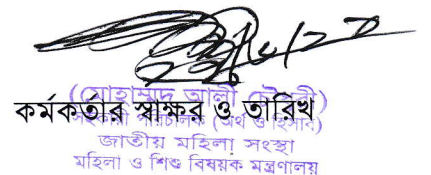 (মোহাম্মদ আলী চৌধুরী)
কর্মকর্তার স্বাক্ষর ও তারিখ
সহকারী পরিচালক (অর্থ ও হিসাব)
জাতীয় মহিলা সংস্থা
মহিলা ও শিশু বিষয়ক মন্ত্রণালয়